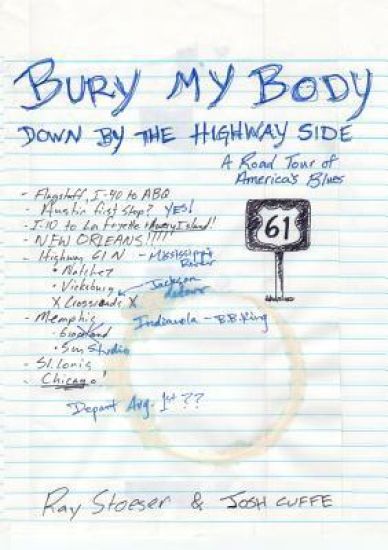 BURY MY BODY
DOWN BY THE HIGHWAY SIDE
A Road Tour of
America's Blues
- Flagstaff, I-40 to ABQ
- Austin first stop? YES!
- I-10 to Lafayette & Avery Island!
- NEW ORLEANS!!!!!
- Highway 61 N - Mississippi
River
• Natchez
• Vicksburg
Jackson
detour
X Crossroads X
- Memphis
Indianola - B.B. King
• Graceland
• Sun Studio
- St. Louis
- Chicago!
Depart Aug. 1st??
61
Ray Stoeser & JOSH CUFFE